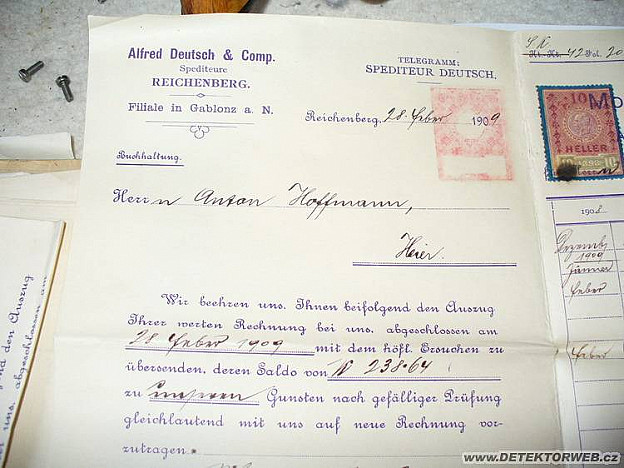 Alfred Deutsch & Comp.
Spediteure
REICHENBERG.
Filiale in Gablonz a. N.
TELEGRAMM:
SPEDITEUR DEUTSCH.
Reichenberg, 28 Feber 1909
Buchhaltung.
Herrn Anton Hoffmann,
Hier.
Wir beehren uns, Ihnen beifolgend den Auszug
Ihrer werten Rechnung bei uns, abgeschlossen am
28 Feber 1909 mit dem höfl. Ersuchen zu
übersenden, deren Saldo von K 238·64
zu unseren Gunsten nach gefälliger Prüfung
gleichlautend mit uns auf neue Rechnung vor-
zutragen.
10
HELLER
10 1898 10
1908
Dezemb
1909
Jänner
Feber
Feber
den Auszug
abgeschlossen am
www.DETEKTORWEB.cz